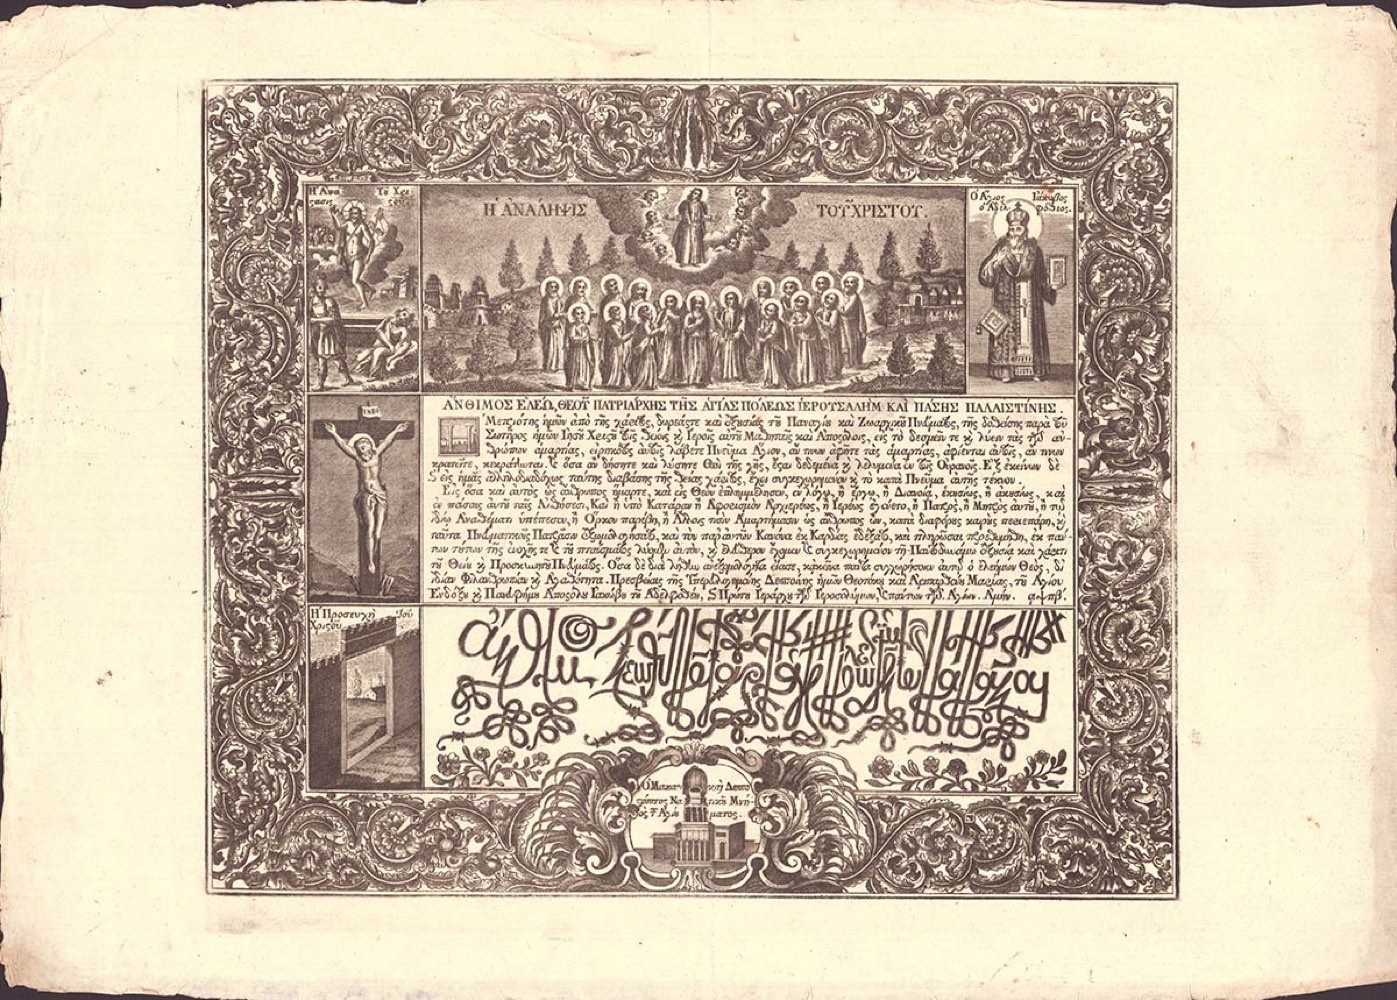 Ἡ Ἀνά Τοῦ Χρι
στασις στοῦ
Ἡ ἈΝΆΛΗΨΙΣ ΤΟΥ͂ ΧΡΙΣΤΟΥ͂.
Ὁ Ἅγιος Ἰάκωβος
ὁ Ἀδελφόθεος.
INBI
ἈΝΘΙΜΟΣ ἘΛΕΩ, ΘΕΟΥ͂ ΠΑΤΡΙΆΡΧΗΣ ΤΗ͂Σ ἉΓΙΑΣ ΠΌΛΕΩΣ ἹΕΡΟΥΣΑΛῊΜ ΚΑῚ ΠΆΣΗΣ ΠΑΛΑΙΣΤΊΝΗΣ.
Ἡ Μετριότης ἡμῶν ἀπὸ τῆς χάριτος, δωρεᾶς τε καὶ ἐξουσίας τοῦ Παναγίου καὶ Ζωαρχικοῦ Πνεύματος, τῆς δοθείσης παρὰ τοῦ
Σωτῆρος ἡμῶν Ἰησοῦ Χριστοῦ τοῖς Θείοις καὶ Ἱεροῖς αὐτοῦ Μαθηταῖς καὶ Ἀποστόλοις, εἰς τὸ δεσμεῖν τε καὶ λύειν τὰς τῶν ἀν-
θρώπων ἁμαρτίας, εἰρηκότος αὐτοῖς λάβετε Πνεῦμα Ἅγιον, ἄν τινων ἀφῆτε τὰς ἁμαρτίας, ἀφίενται αὐτοῖς, ἄν τινων
κρατῆτε, κεκράτηνται. καὶ ὅσα ἂν δήσητε καὶ λύσητε ἐπὶ τῆς γῆς, ἔσται δεδεμένα καὶ λελυμένα ἐν τοῖς Οὐρανοῖς. Ἐξ ἐκείνων δὲ
καὶ εἰς ἡμᾶς ἀλληλοδιαδόχως ταύτης διαβάσης τῆς θείας χάριτος, ἔχει συγκεχωρημένον καὶ τὸ κατὰ Πνεῦμα αὐτῆς τέκνον.
Εἰς ὅσα καὶ αὐτὸς ὡς ἄνθρωπος ἥμαρτε, καὶ εἰς Θεὸν ἐπλημμέλησεν, ἐν λόγῳ, ἢ ἔργῳ, ἢ Διανοίᾳ, ἑκουσίως, ἢ ἀκουσίως, καὶ
ἐν πάσαις αὐτοῦ ταῖς Αἰσθήσεσι, Καὶ ἢ ὑπὸ Κατάραν ἢ Ἀφορισμὸν Ἀρχιερέως, ἢ Ἱερέως ἐγένετο, ἢ Πατρὸς, ἢ Μητρὸς αὐτοῦ, ἢ τῷ
ἰδίῳ Ἀναθέματι ὑπέπεσεν, ἢ Ὅρκον παρέβη, ἢ Ἄλλοις τισὶν Ἁμαρτήμασιν ὡς ἄνθρωπος ὢν, κατὰ διαφόρους καιροὺς περιεπάρη, καὶ
ταῦτα Πνευματικοῖς Πατράσιν ἐξωμολογήσατο, καὶ τὸν παρ' αὐτῶν Κανόνα ἐκ Καρδίας ἐδέξατο, καὶ πληρῶσαι προεθυμήθη, ἐκ πάν-
των τούτων τῆς ἐνοχῆς τε καὶ τοῦ πταίσματος λύομεν αὐτὸν, καὶ ἐλεύθερον ἔχομεν καὶ συγκεχωρημένον τῇ Παντοδυνάμῳ ἐξουσίᾳ καὶ χάριτι
τοῦ Θείου καὶ Προσκυνητοῦ Πνεύματος. Ὅσα δὲ διὰ λήθην ἀνεξομολόγητα εἴασε, κἀκεῖνα πάντα συγχωρήσοι αὐτῷ ὁ ἐλεήμων Θεὸς, διὰ
ἰδίαν Φιλανθρωπίαν καὶ Ἀγαθότητα. Πρεσβείαις τῆς Ὑπερευλογημένης Δεσποίνης ἡμῶν Θεοτόκου καὶ Ἀειπαρθένου Μαρίας, τοῦ Ἁγίου
Ἐνδόξου καὶ Πανευφήμου Ἀποστόλου Ἰακώβου τοῦ Ἀδελφοθέου, καὶ Πρώτου Ἱεράρχου τῶν Ἱεροσολύμων, καὶ πάντων τῶν Ἁγίων. Ἀμήν.
Ἡ Προσευχὴ Τοῦ
Χριστοῦ